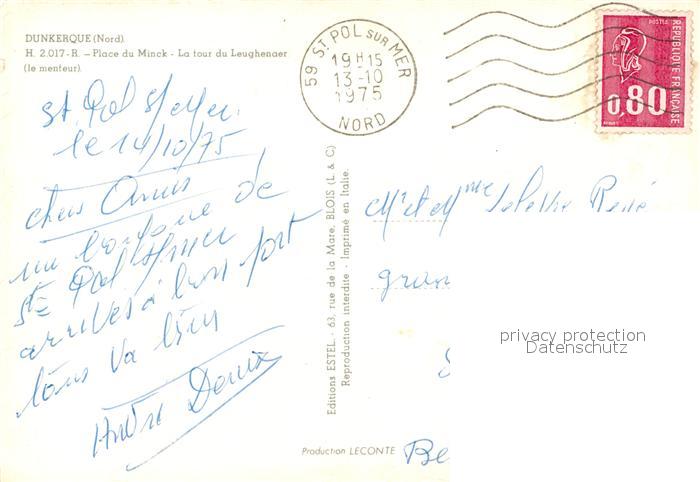 DUNKERQUE (Nord).
H. 2.017-R. – Place du Minck - La tour du Leughenaer
(le menteur).
St Pol s/Mer
le 14/10/75
chers Amis
un bonjour de
St Pol s/mer
arrivés à bon port
tous va bien
André
Editions ESTEL - 63, rue de la Mare, BLOIS (L & C)
Reproduction interdite - Imprimé en Italie.
Production LECONTE
59 ST POL SUR MER
19 H 15
13-10
1975
NORD
POSTES
REPUBLIQUE FRANÇAISE
0,80
Mr et Mme René
gran
Be
privacy protection
Datenschutz